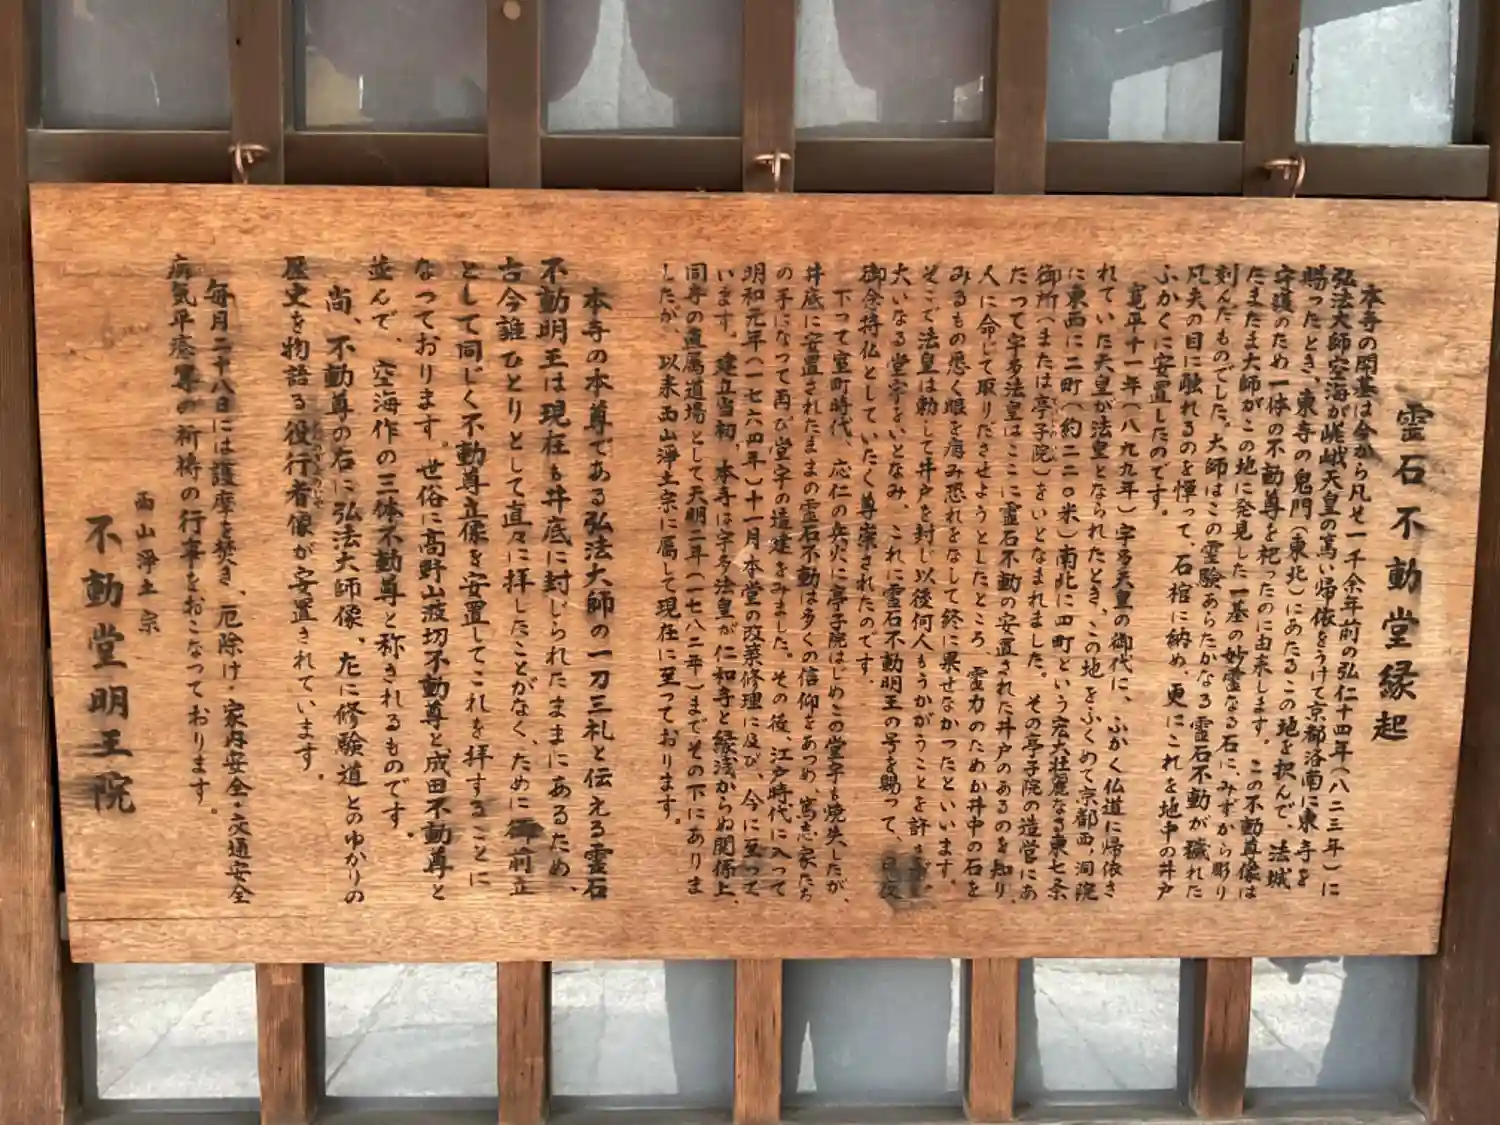 霊石不動堂縁起
本寺の開基は今から凡そ一千余年前の弘仁十四年(八二三年)に
弘法大師空海が嵯峨天皇の篤い帰依をうけて京都洛南に東寺を
賜ったとき、東寺の鬼門(東北)にあたるこの地を択んで、法城
守護のため一体の不動尊を祀ったのに由来します。この不動尊像は
たまたま大師がこの地に発見した一基の妙霊なる石に、みずから彫り
刻んだものでした。大師はこの霊験あらたかなる霊石不動が穢れた
凡夫の目に触れるのを憚って、石棺に納め、更にこれを地中の井戸
ふかくに安置したのです。
寛平十一年(八九九年)宇多天皇の御代に、ふかく仏道に帰依さ
れていた天皇が法皇となられたとき、この地をふくめて京都西洞院
に東西に二町(約二二〇米)南北に四町という宏大壮麗なる東七条
御所(または亭子院)をいとなまれました。その亭子院の造営にあ
たって宇多法皇はここに霊石不動の安置された井戸のあるのを知り、
人に命じて取りださせようとしたところ、霊力のためか井中の石を
みるもの悉く眼を病み恐れをなして終に果せなかったといいます。
そこで法皇は勅して井戸を封じ以後何人もうかがうことを許さず、
大いなる堂宇をいとなみ、これに霊石不動明王の号を賜って、日夜
御念持仏としていたく尊崇されたのです。
下って室町時代、応仁の兵火に亭子院はじめこの堂宇も焼失したが、
井底に安置されたままの霊石不動は多くの信仰をあつめ、篤志家たち
の手になって再び堂宇の造建をみました。その後、江戸時代に入って
明和元年(一七六四年)十一月本堂の改築修理に及び、今に至って
います。建立当初、本寺は宇多法皇が仁和寺と縁浅からぬ関係上、
同寺の直属道場として天明二年(一七八二年)までその下にありま
したが、以来西山浄土宗に属して現在に至っております。
本寺の本尊である弘法大師の一刀三礼と伝える霊石
不動明王は現在も井底に封じられたままにあるため、
古今誰ひとりとして直々に拝したことがなく、ために御前立
として同じく不動尊立像を安置してこれを拝することに
なっております。世俗に高野山波切不動尊と成田不動尊と
並んで、空海作の三体不動尊と称されるものです。
尚、不動尊の右に弘法大師像、左に修験道とのゆかりの
歴史を物語る役行者像が安置されています。
毎月二十八日には護摩を焚き、厄除け・家内安全・交通安全
病気平癒等の祈祷の行事をおこなっております。
西山浄土宗
不動堂明王院